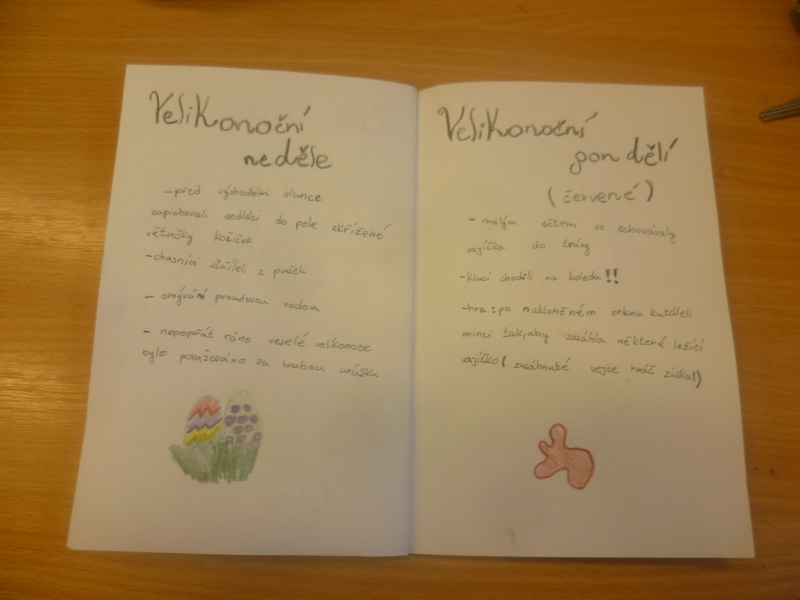 Velikonoční
neděle
-před východem slunce
zapichovali sedláci do pole zkřížené
větvičky kočiček
-chasníci stříleli z pušek
- omývání proudovou vodou
- nepopřát ráno veselé velikonoce
bylo považováno za hrubou urážku
Velikonoční
pondělí
(červené)
- malým dětem se schovávaly
vajíčka do trávy
-kluci chodili na koledu!!
-hra: po nakloněném prknu kutáleli
minci tak, aby zasáhla některé ležící
vajíčko ( zasáhnuté vejce hráč získal)